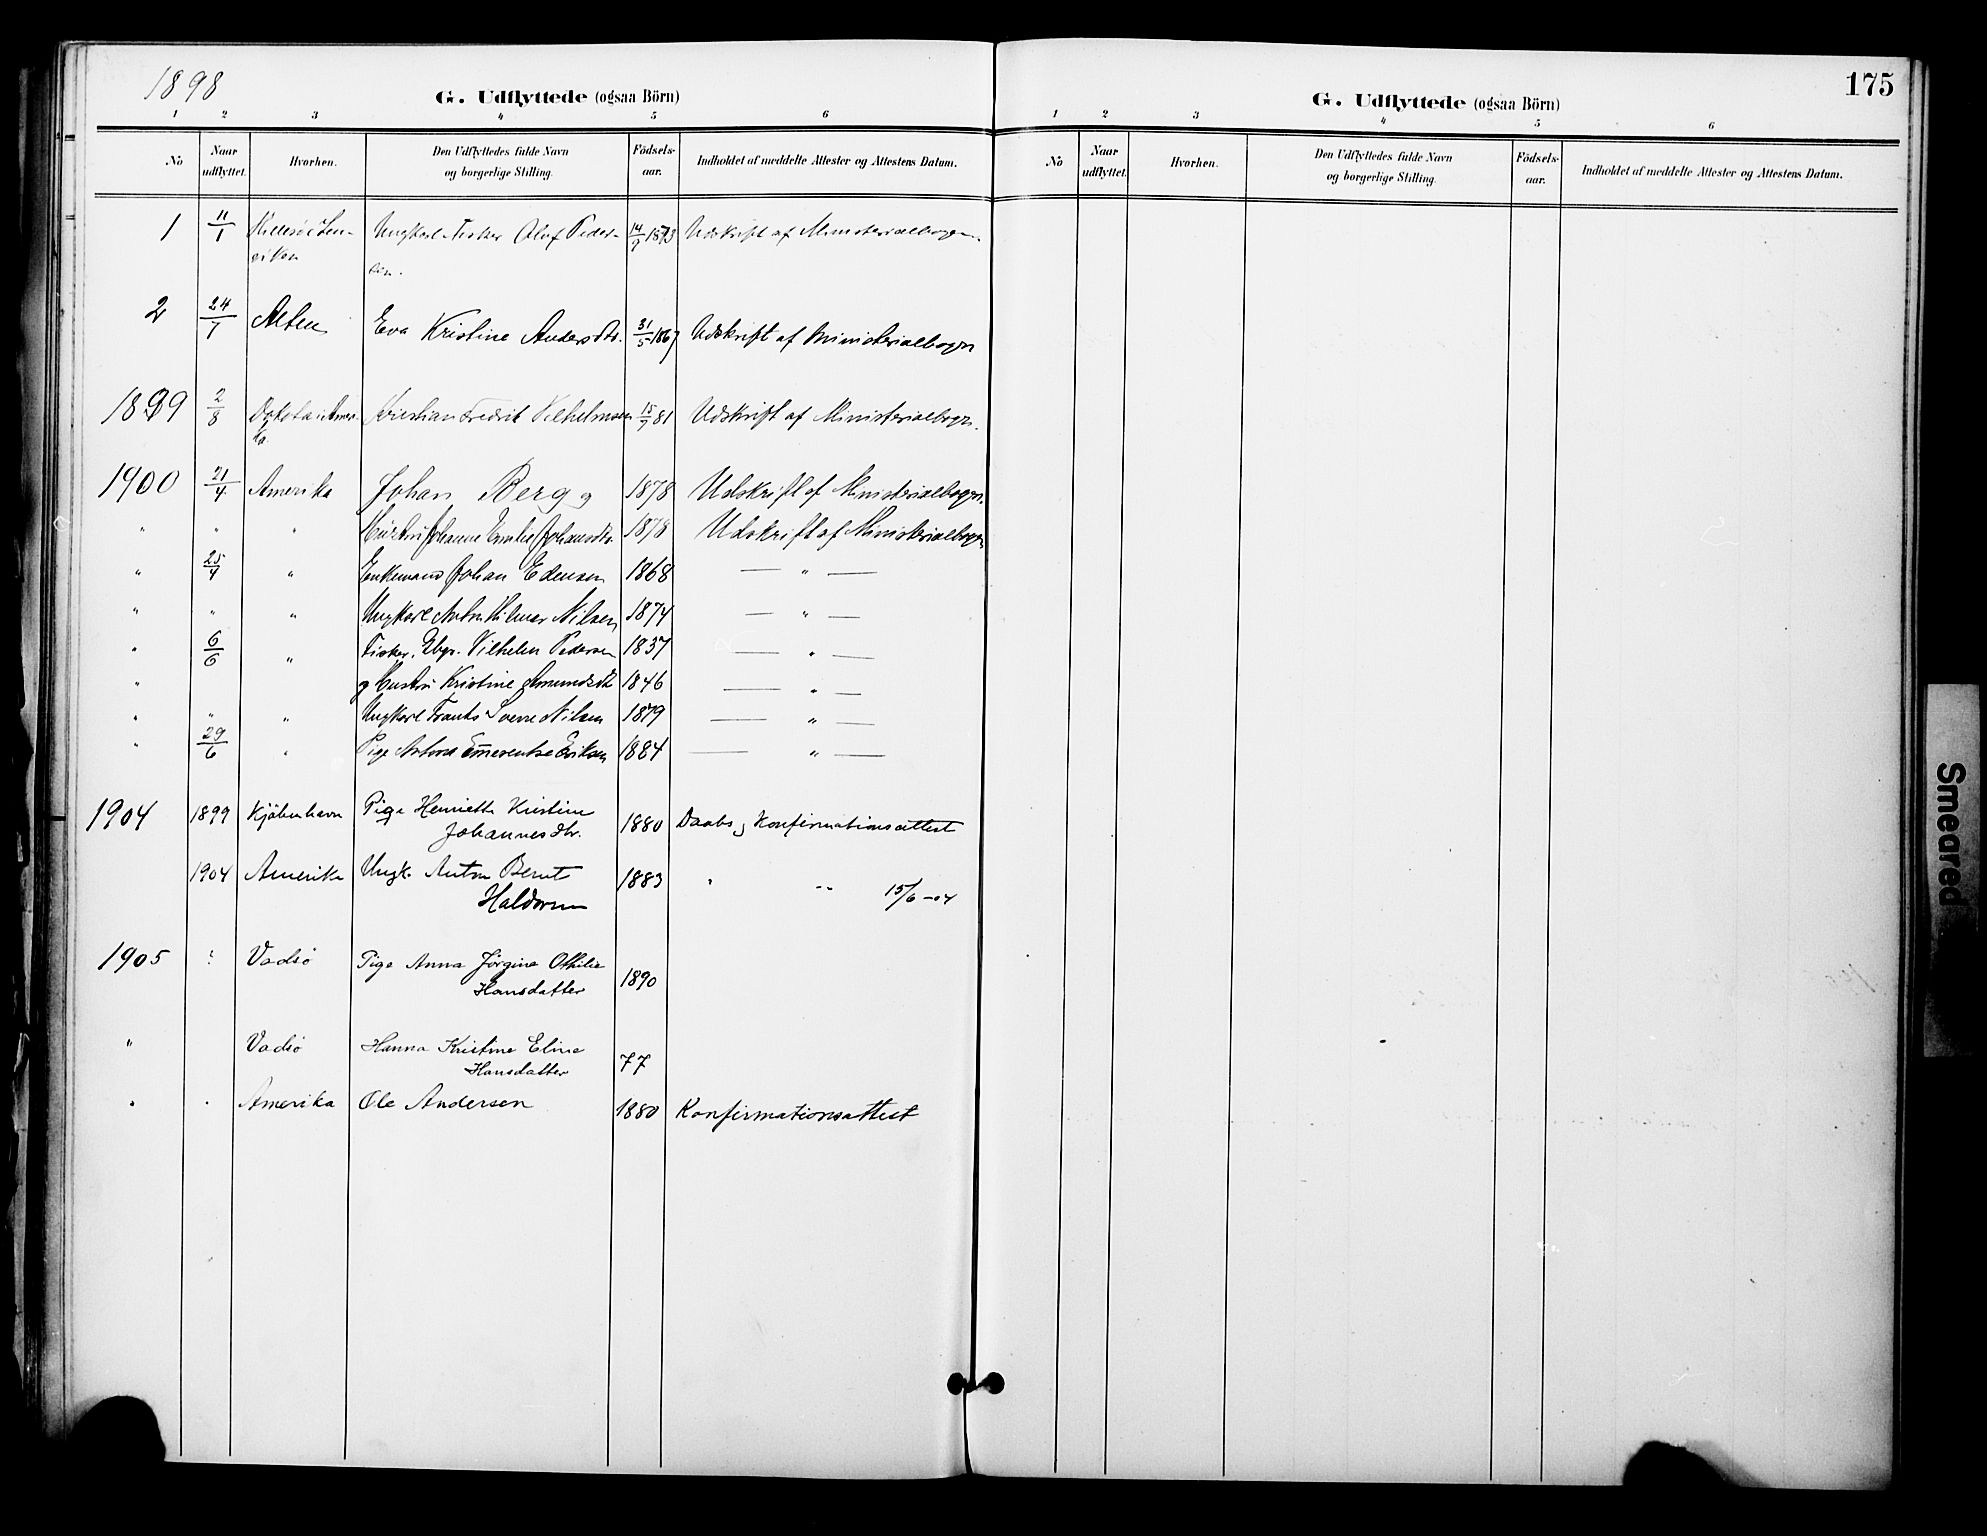 1898
G. Udflyttede (ogsaa Börn)
1 2 3 4 5 6
No Naar udflyttet. Hvorhen. Den Udflyttedes fulde Navn og borgerlige Stilling. Födsels-aar. Indholdet af meddelte Attester og Attestens Datum.
1 11/1 Ungkarl Fisker Olaf Peder- 14/9 1873 Udskrift af Ministerialbogen.
sen.
2 24/7 Alten Eva Kristine Andersdtr. 31/5 1867 Udskrift af Ministerialbogn
1899 2/8 Dakota i Amer- Kristian Fredrik Vilhelmsen 15/9 81 Udskrift af Ministerialbogn.
ka.
1900 21/4 Amerika Johan Berg og 1878 Udskrift af Ministerialbogn.
" " " Hustru Johanne Emilie Johansdtr. 1878 Udskrift af Ministerialbogn
" 25/4 " Enkemand Johan Edensen 1868 — " —
" " " Ungkarl Anton Hilmar Nilsen 1874 — " —
" 6/6 " Fisker, Vilhelm Pedersen 1837 — " —
" og Hustru Kristine Amundsdtr 1846 — " —
" " " Ungkarl Frants Sverre Nilsen 1879 — " —
" 29/6 " Pige Antona Emerentse Eriksen 1884 — " —
1904 1899 Kjøbenhavn Pige Henriette Kristine
Johannesdtr. 1880 Daabs og Konfirmationsattest
1904 Amerika Ungk. Anton Bernt 1883 " " 15/6-04
1905 : Vadsö Pige Anna Jörgine Othilie
Hansdatter 1890
" Vadsö Hanna Kristine Eline
Hansdatter 77
" . Amerika Ole Andersen 1880 Konfirmationsattest
175
G. Udflyttede (ogsaa Börn)
1 2 3 4 5 6
No Naar udflyttet. Hvorhen. Den Udflyttedes fulde Navn og borgerlige Stilling. Födsels-aar. Indholdet af meddelte Attester og Attestens Datum.
Smeared